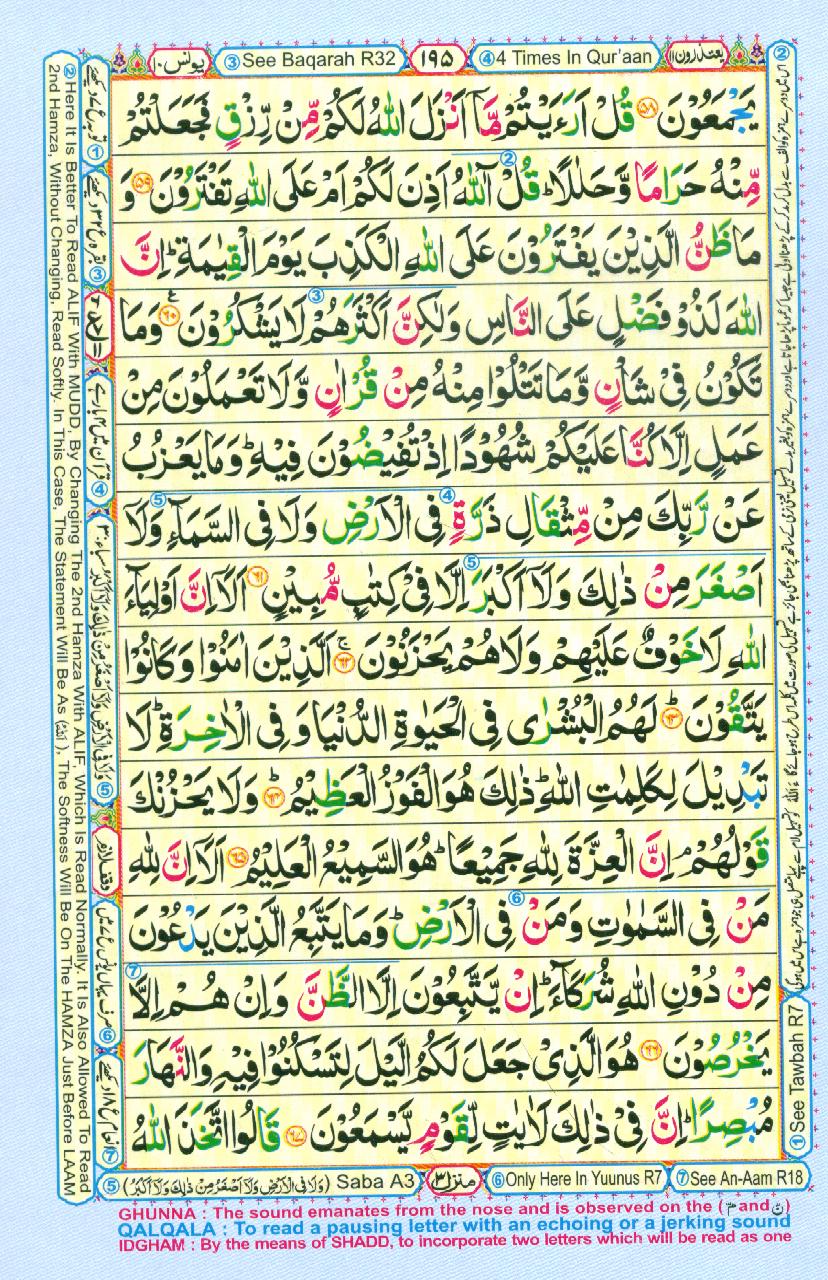 يعتذرون ١١
④ 4 Times In Qur'aan
١٩٥
③ See Baqarah R32
يونس ١٠
يَجْمَعُوْنَ ﴿۵۸﴾ قُلْ اَرَءَيْتُمْ مَّاۤ اَنْزَلَ اللّٰهُ لَكُمْ مِّنْ رِّزْقٍ فَجَعَلْتُمْ
مِّنْهُ حَرَامًا وَّحَلٰلًا ؕ قُلْ آٰللّٰهُ اَذِنَ لَكُمْ اَمْ عَلَى اللّٰهِ تَفْتَرُوْنَ ﴿۵۹﴾ وَ
مَا ظَنُّ الَّذِيْنَ يَفْتَرُوْنَ عَلَى اللّٰهِ الْكَذِبَ يَوْمَ الْقِيٰمَةِ ؕ اِنَّ
اللّٰهَ لَذُوْ فَضْلٍ عَلَى النَّاسِ وَلٰكِنَّ اَكْثَرَهُمْ لَا يَشْكُرُوْنَ ﴿۶۰﴾ وَمَا
تَكُوْنُ فِيْ شَاْنٍ وَّمَا تَتْلُوْا مِنْهُ مِنْ قُرْاٰنٍ وَّلَا تَعْمَلُوْنَ مِنْ
عَمَلٍ اِلَّا كُنَّا عَلَيْكُمْ شُهُوْدًا اِذْ تُفِيْضُوْنَ فِيْهِ ؕ وَمَا يَعْزُبُ
عَنْ رَّبِّكَ مِنْ مِّثْقَالِ ذَرَّةٍ فِي الْاَرْضِ وَلَا فِي السَّمَآءِ وَلَاۤ
اَصْغَرَ مِنْ ذٰلِكَ وَلَاۤ اَكْبَرَ اِلَّا فِيْ كِتٰبٍ مُّبِيْنٍ ﴿۶۱﴾ اَلَاۤ اِنَّ اَوْلِيَآءَ
اللّٰهِ لَا خَوْفٌ عَلَيْهِمْ وَلَا هُمْ يَحْزَنُوْنَ ﴿۶۲﴾ ۚ الَّذِيْنَ اٰمَنُوْا وَكَانُوْا
يَتَّقُوْنَ ﴿۶۳﴾ ؕ لَهُمُ الْبُشْرٰى فِي الْحَيٰوةِ الدُّنْيَا وَفِي الْاٰخِرَةِ ؕ لَا
تَبْدِيْلَ لِكَلِمٰتِ اللّٰهِ ؕ ذٰلِكَ هُوَ الْفَوْزُ الْعَظِيْمُ ﴿۶۴﴾ ؕ وَلَا يَحْزُنْكَ
قَوْلُهُمْ ۘ اِنَّ الْعِزَّةَ لِلّٰهِ جَمِيْعًا ؕ هُوَ السَّمِيْعُ الْعَلِيْمُ ﴿۶۵﴾ اَلَاۤ اِنَّ لِلّٰهِ
مَنْ فِي السَّمٰوٰتِ وَمَنْ فِي الْاَرْضِ ؕ وَمَا يَتَّبِعُ الَّذِيْنَ يَدْعُوْنَ
مِنْ دُوْنِ اللّٰهِ شُرَكَآءَ ؕ اِنْ يَّتَّبِعُوْنَ اِلَّا الظَّنَّ وَاِنْ هُمْ اِلَّا
يَخْرُصُوْنَ ﴿۶۶﴾ هُوَ الَّذِيْ جَعَلَ لَكُمُ الَّيْلَ لِتَسْكُنُوْا فِيْهِ وَالنَّهَارَ
مُبْصِرًا ؕ اِنَّ فِيْ ذٰلِكَ لَاٰيٰتٍ لِّقَوْمٍ يَّسْمَعُوْنَ ﴿۶۷﴾ قَالُوا اتَّخَذَ اللّٰهُ
① See Tawbah R7
② Here It Is Better To Read ALIF With MUDD, By Changing The 2nd Hamza With ALIF, Which Is Read Normally. It Is Also Allowed To Read
2nd Hamza, Without Changing, Read Softly. In This Case, The Statement Will Be As (ءَاَللّٰهُ), The Softness Will Be On The HAMZA Just Before LAAM
⑤ (وَلَا فِي الْاَرْضِ وَلَاۤ اَصْغَرُ مِنْ ذٰلِكَ وَلَاۤ اَكْبَرُ) Saba A3
منزل ٣
⑥ Only Here In Yuunus R7
⑦ See An-Aam R18
GHUNNA : The sound emanates from the nose and is observed on the (مّ and نّ)
QALQALA : To read a pausing letter with an echoing or a jerking sound
IDGHAM : By the means of SHADD, to incorporate two letters which will be read as one